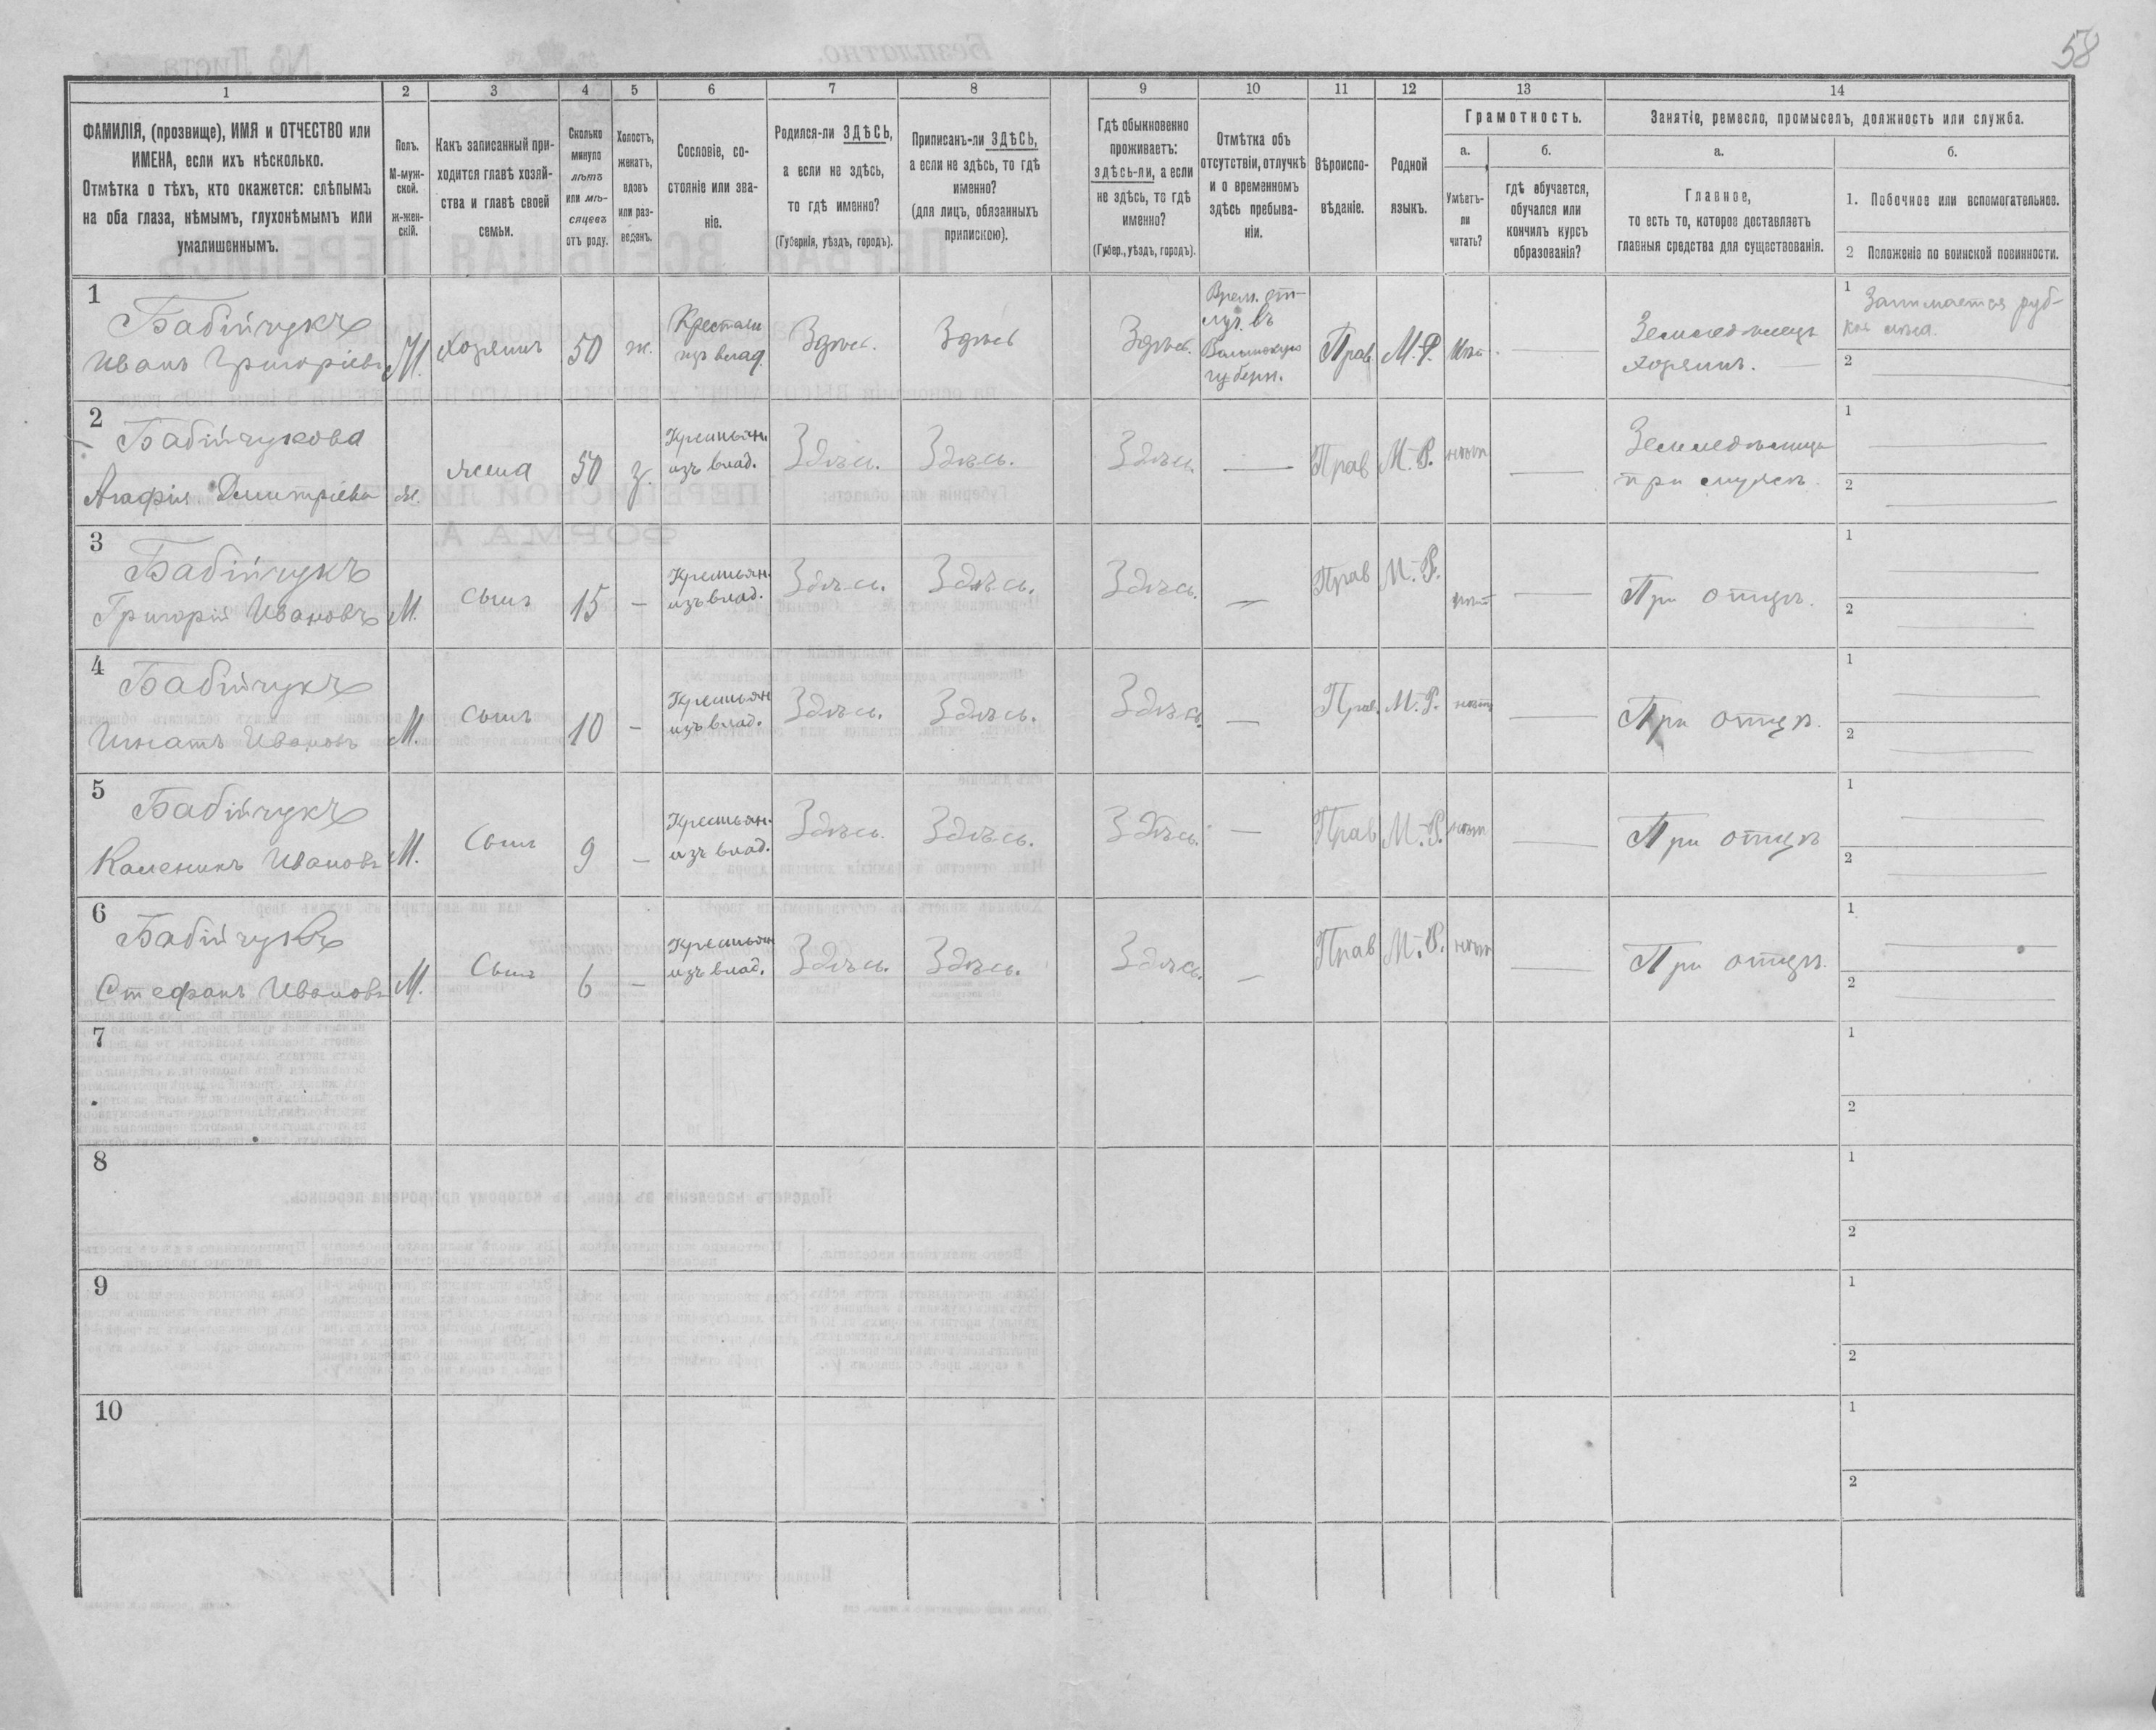 58
1 2 3 4 5 6 7 8 9 10 11 12 13 14
ФАМИЛІЯ, (прозвище), ИМЯ и ОТЧЕСТВО или
ИМЕНА, если ихъ нѣсколько.
Отмѣтка о тѣхъ, кто окажется: слѣпымъ
на оба глаза, нѣмымъ, глухонѣмымъ или
умалишеннымъ.
Полъ.
М-муж-
ской.
ж-жен-
скій.
Какъ записанный при-
ходится главѣ хозяй-
ства и главѣ своей
семьи.
Сколько
минуло
лѣтъ
или мѣ-
сяцевъ
отъ роду.
Холостъ,
женатъ,
вдовъ
или раз-
веденъ.
Сословіе, со-
стояніе или зва-
ніе.
Родился-ли ЗДѢСЬ,
а если не здѣсь,
то гдѣ именно?
(Губернія, уѣздъ, городъ).
Приписанъ-ли ЗДѢСЬ,
а если не здѣсь, то гдѣ
именно?
(для лицъ, обязанныхъ
припискою).
Гдѣ обыкновенно
проживаетъ:
здѣсь-ли, а если
не здѣсь, то гдѣ
именно?
(Губер., уѣздъ, городъ).
Отмѣтка объ
отсутствіи, отлучкѣ
и о временномъ
здѣсь пребыва-
ніи.
Вѣроиспо-
вѣданіе.
Родной
языкъ.
Грамотность.
а.
Умѣетъ-
ли
читать?
б.
гдѣ обучается,
обучался или
кончилъ курсъ
образованія?
Занятіе, ремесло, промыселъ, должность или служба.
а.
Главное,
то есть то, которое доставляетъ
главныя средства для существованія.
б.
1. Побочное или вспомогательное.
2 Положеніе по воинской повинности.
1
Бабійчукъ
Иванъ Григоріевъ
М.
хозяинъ
50
ж.
Крестьян
изъ влад.
Здѣсь.
Здѣсь
Здѣсь.
Врем. от-
луч. въ
Волынскую
губерн.
Прав
М.-Р.
нѣт
Земледѣлецъ
хозяинъ.
1 Занимается руб-
кой лѣса.
2
2
Бабійчукова
Агафія Дмитріева
ж.
жена
50
з.
Крестьян.
изъ влад.
Здѣсь.
Здѣсь.
Здѣсь
Прав
М.-Р.
нѣт
Земледѣлица
при мужѣ.
1
2
3
Бабійчукъ
Григорій Ивановъ
М.
сынъ
15
Крестьян.
изъ влад.
Здѣсь.
Здѣсь.
Здѣсь.
Прав
М.-Р.
нѣт
При отцѣ.
1
2
4
Бабійчукъ
Игнатъ Ивановъ
М.
сынъ
10
Крестьян
изъ влад.
Здѣсь.
Здѣсь.
Здѣсь.
Прав.
М.-Р.
нѣт
При отцѣ.
1
2
5
Бабійчукъ
Каленикъ Ивановъ
М.
Сынъ
9
Крестьян.
изъ влад.
Здѣсь.
Здѣсь.
Здѣсь.
Прав
М.-Р.
нѣт
При отцѣ
1
2
6
Бабійчукъ
Стефанъ Ивановъ
М.
Сынъ
6
Крестьян
изъ влад.
Здѣсь.
Здѣсь.
Здѣсь.
Прав
М.-Р.
нѣт
При отцѣ.
1
2
7
1
2
8
1
2
9
1
2
10
1
2